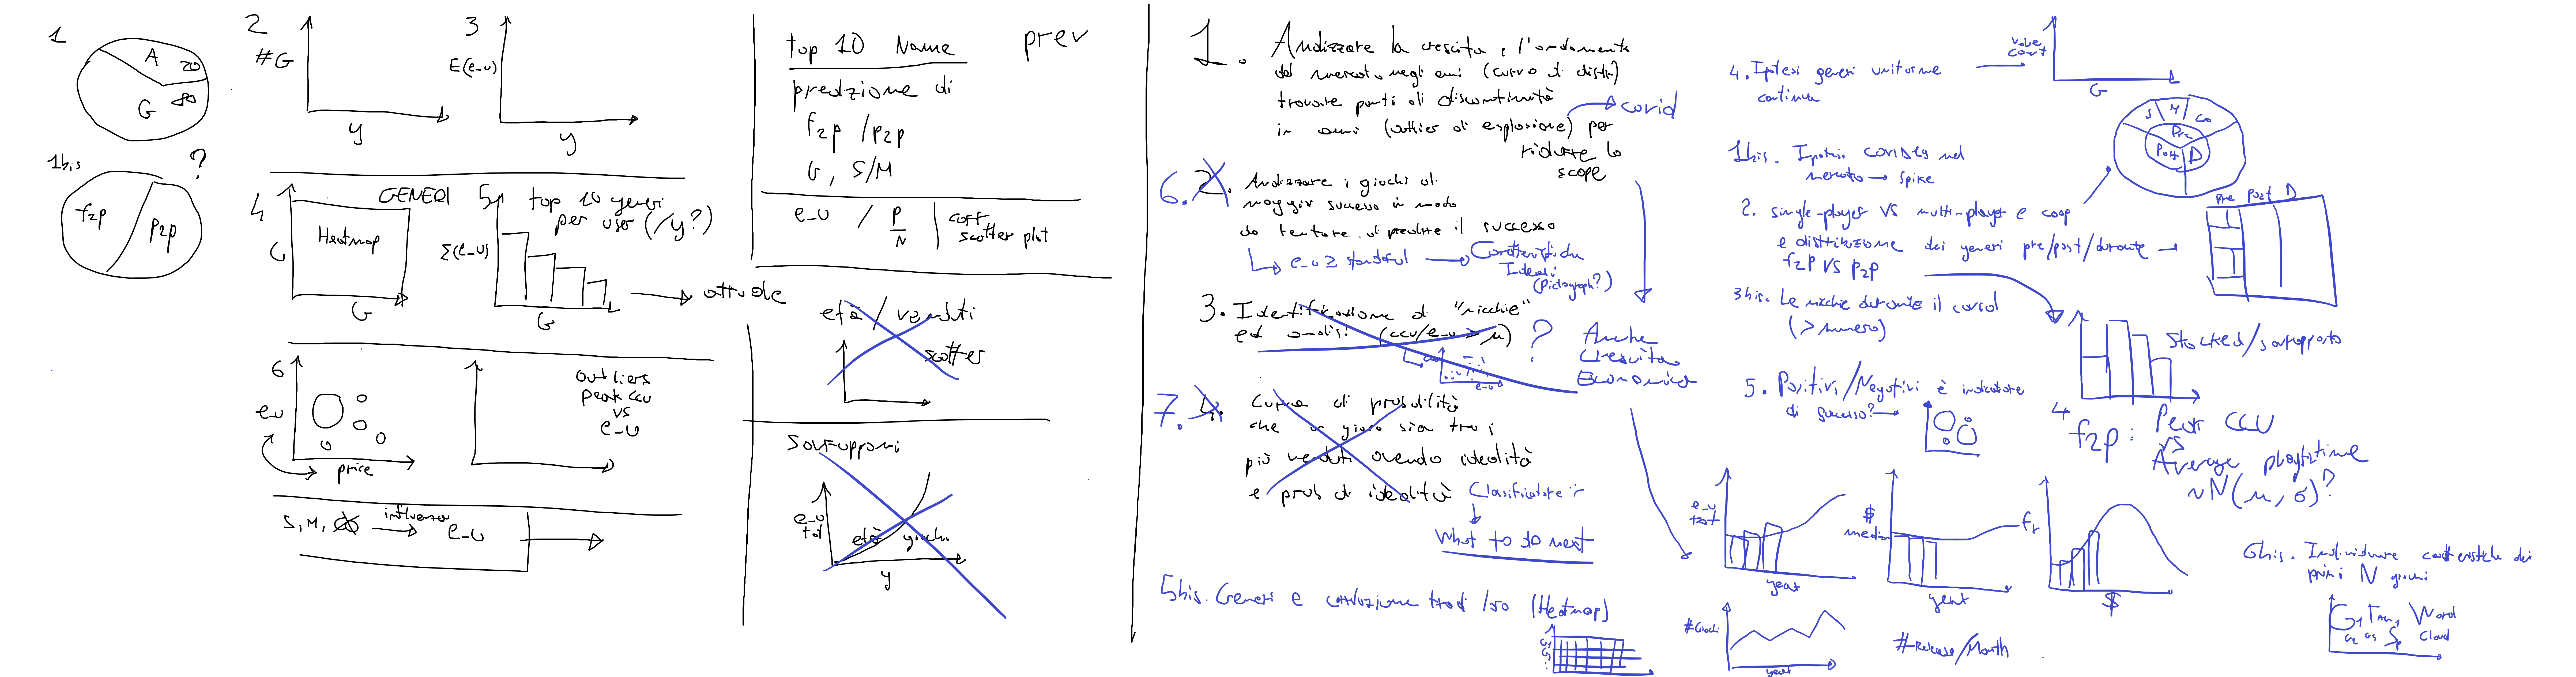 1
A 20
G 80
1bis
?
f2p
p2p
2
#G
y
3
E(e_u)
y
4
GENERI
Heatmap
G
G
5
top 10 generi
per user (/y?)
Σ(e_u)
G
attuale
6
e_u
price
Outliers
peak ccu
vs
e_u
S, M,
influenza
e_u
top 10 Name
prev
predizione di
f2p / p2p
G, S/M
e_u / P/N
coff
scatter plot
età / venduti
scatter
Sovrapponi
e_u
tot
età giochi
y
1. Analizzare la crescita e l'andamento
del mercato negli anni (curva di distr)
trovare punti di discontinuità
in anni (outlier di esplosione) per
ridurre lo
scope
covid
6. 2. Analizzare i giochi di
maggior successo in modo
da tentare di predire il successo
e_u ≥ standard
Caratteristiche
Ideali
(Pictograph?)
3. Identificazione di "nicchie"
ed analisi (ccu/e_u > μ) ?
e_u
Anche
Crescita
Economica
7. 4. Curva di probabilità
che un gioco sia tra i
più venduti avendo idealità
e prob di idealità
Classificatore
What to do next
5bis. Generi e correlazione tra di loro (Heatmap)
4. Ipotesi generi uniforme
continua
value
count
G
1bis. Ipotesi covid19 nel
mercato → spike
2. single-player VS multi-player e coop
e distribuzione dei generi pre/post/durante
f2p VS p2p
S M Co
Pre
Post D
Pre Post D
3bis. Le nicchie durante il covid
(> numero)
Stacked/sovrapposto
5. Positivi/Negativi è indicatore
di successo?
4
f2p: Peak CCU
VS
Average playtime
~N(μ, σ)?
e_u
tot
year
$
media
year
fr
$
#Giochi
year
#Release/Month
6bis. Individuare caratteristiche dei
primi N giochi
Word
Cloud